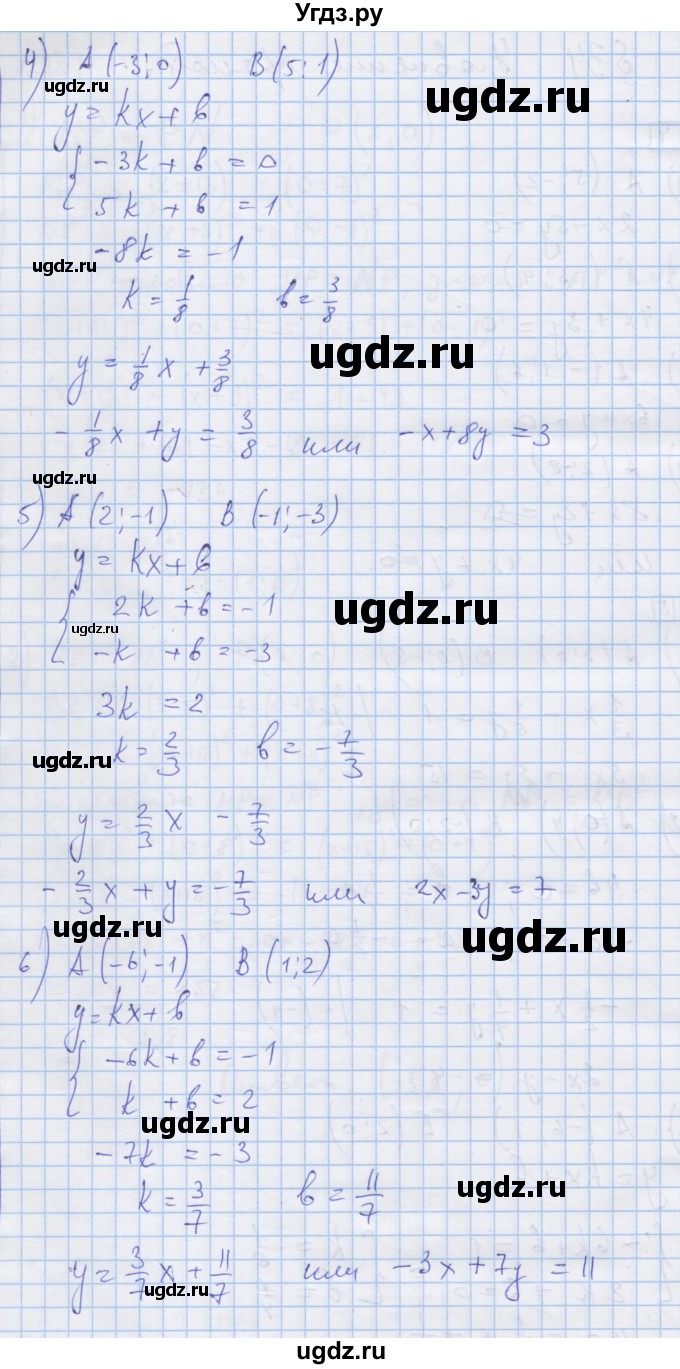 Угдз.ру
4) A(-3;0) B(5;1)
ugdz.ru
ugdz.ru
y = kx + b
{ -3k + b = 0
5k + b = 1
-8k = -1
ugdz.ru
k = 1/8 b = 3/8
ugdz.ru
y = 1/8 x + 3/8
-1/8 x + y = 3/8 или -x + 8y = 3
ugdz.ru
5) A(2;-1) B(-1;-3)
y = kx + b
{ 2k + b = -1
ugdz.ru
ugdz.ru
-k + b = -3
3k = 2
k = 2/3 b = -7/3
ugdz.ru
y = 2/3 x - 7/3
-2/3 x + y = -7/3 или 2x - 3y = 7
ugdz.ru
ugdz.ru
6) A(-6;-1) B(1;2)
y = kx + b
{ -6k + b = -1
k + b = 2
ugdz.ru
-7k = -3
k = 3/7 b = 11/7
ugdz.ru
y = 3/7 x + 11/7 или -3x + 7y = 11
ugdz.ru
ugdz.ru